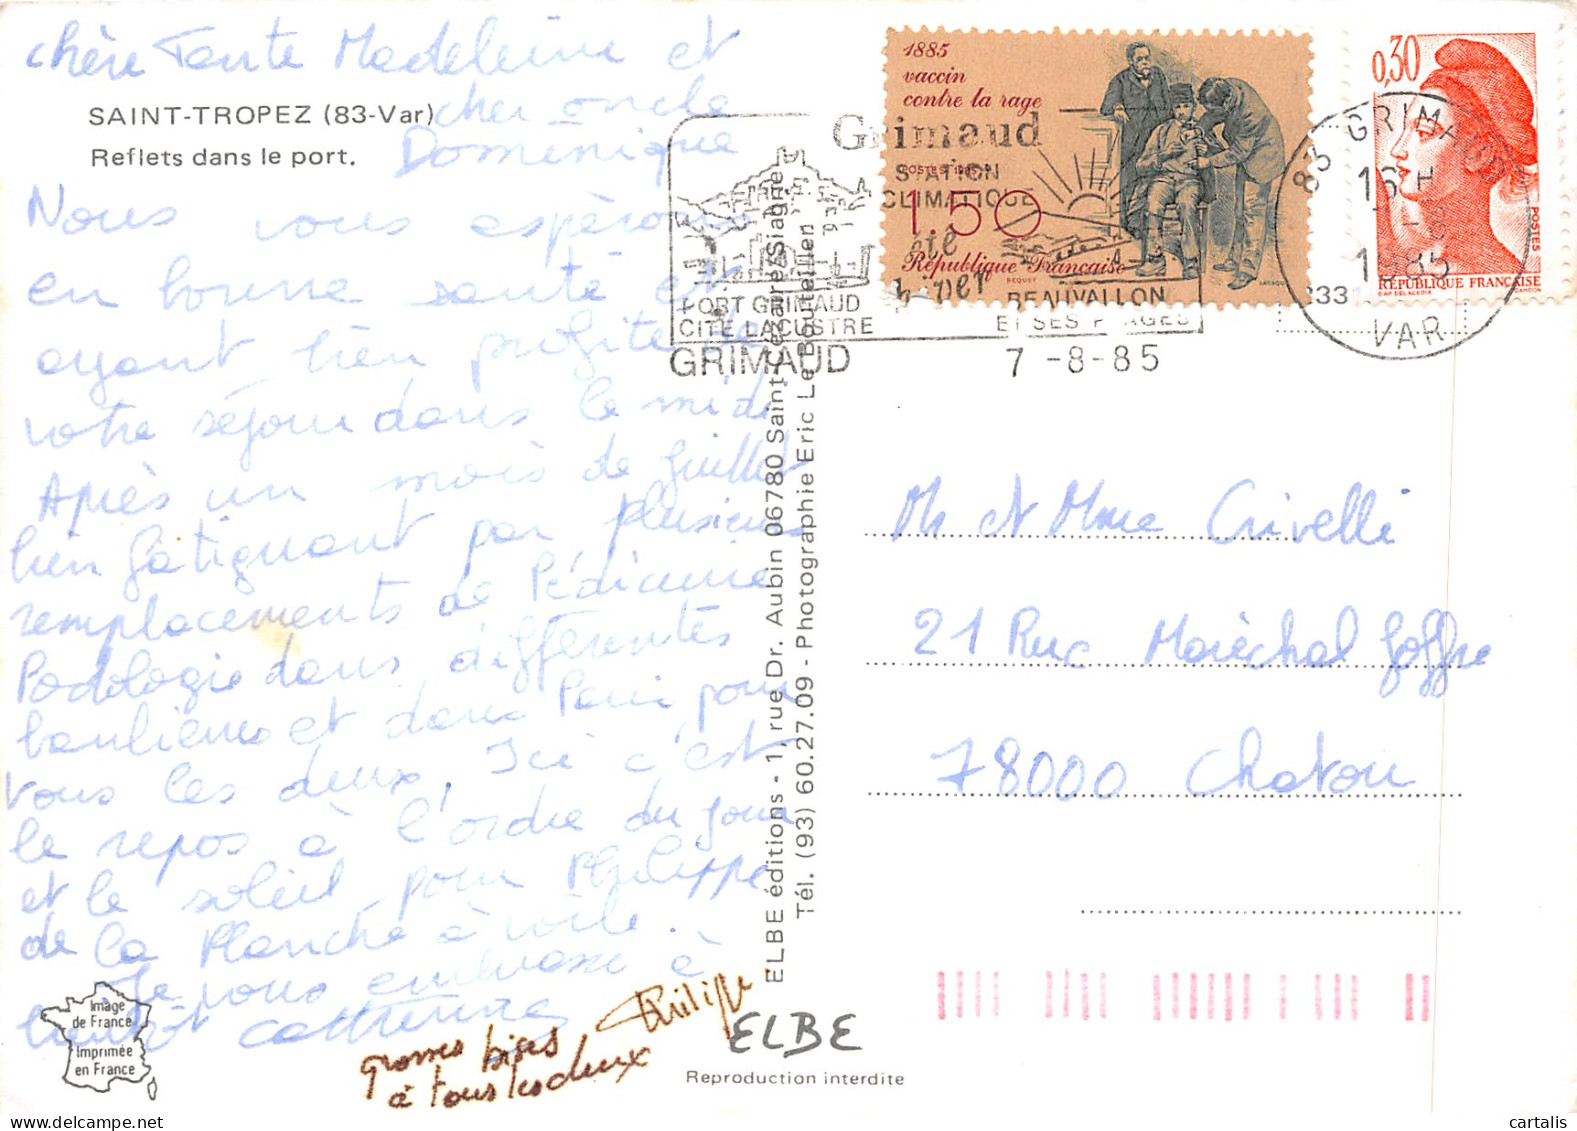 chère Tante Madeleine et
cher oncle
Dominique
SAINT-TROPEZ (83-Var)
Reflets dans le port.
Nous vous espérons
en bonne santé et
ayant bien profité de
votre séjour dans le midi.
Après un mois de Juillet
bien fatiguant par plusieurs
remplacements de Pédicurie
Podologie dans différentes
banlieues et dans Paris pour
tous les deux, Ici c'est
le repos à l'ordre du jour
et le soleil pour Philippe
de la Planche à voile.
Je vous embrasse à
bientôt Catherine
grosses bises
à tous les deux
Philippe
Image
de France
Imprimée
en France
ELBE éditions - 1, rue Dr. Aubin 06780 Saint-Cézaire/Siagne
Tél. (93) 60.27.09 - Photographie Eric Le Bouteiller
ELBE
Reproduction interdite
1885
vaccin
contre la rage
POSTES 1985
1.50
République Française
BEQUET
0,30
POSTES
REPUBLIQUE FRANÇAISE
D'AP. DELACROIX
GANDON
Grimaud
STATION
CLIMATIQUE
été
hiver
PORT GRIMAUD
CITE LACUSTRE
BEAUVALLON
ET SES PLAGES
GRIMAUD
7 -8-85
83 GRIMAUD
16 H
7 -8
1985
VAR
333
Mr et Mme Crivelli
21 Rue Maréchal Joffre
78000 Chatou
cartalis